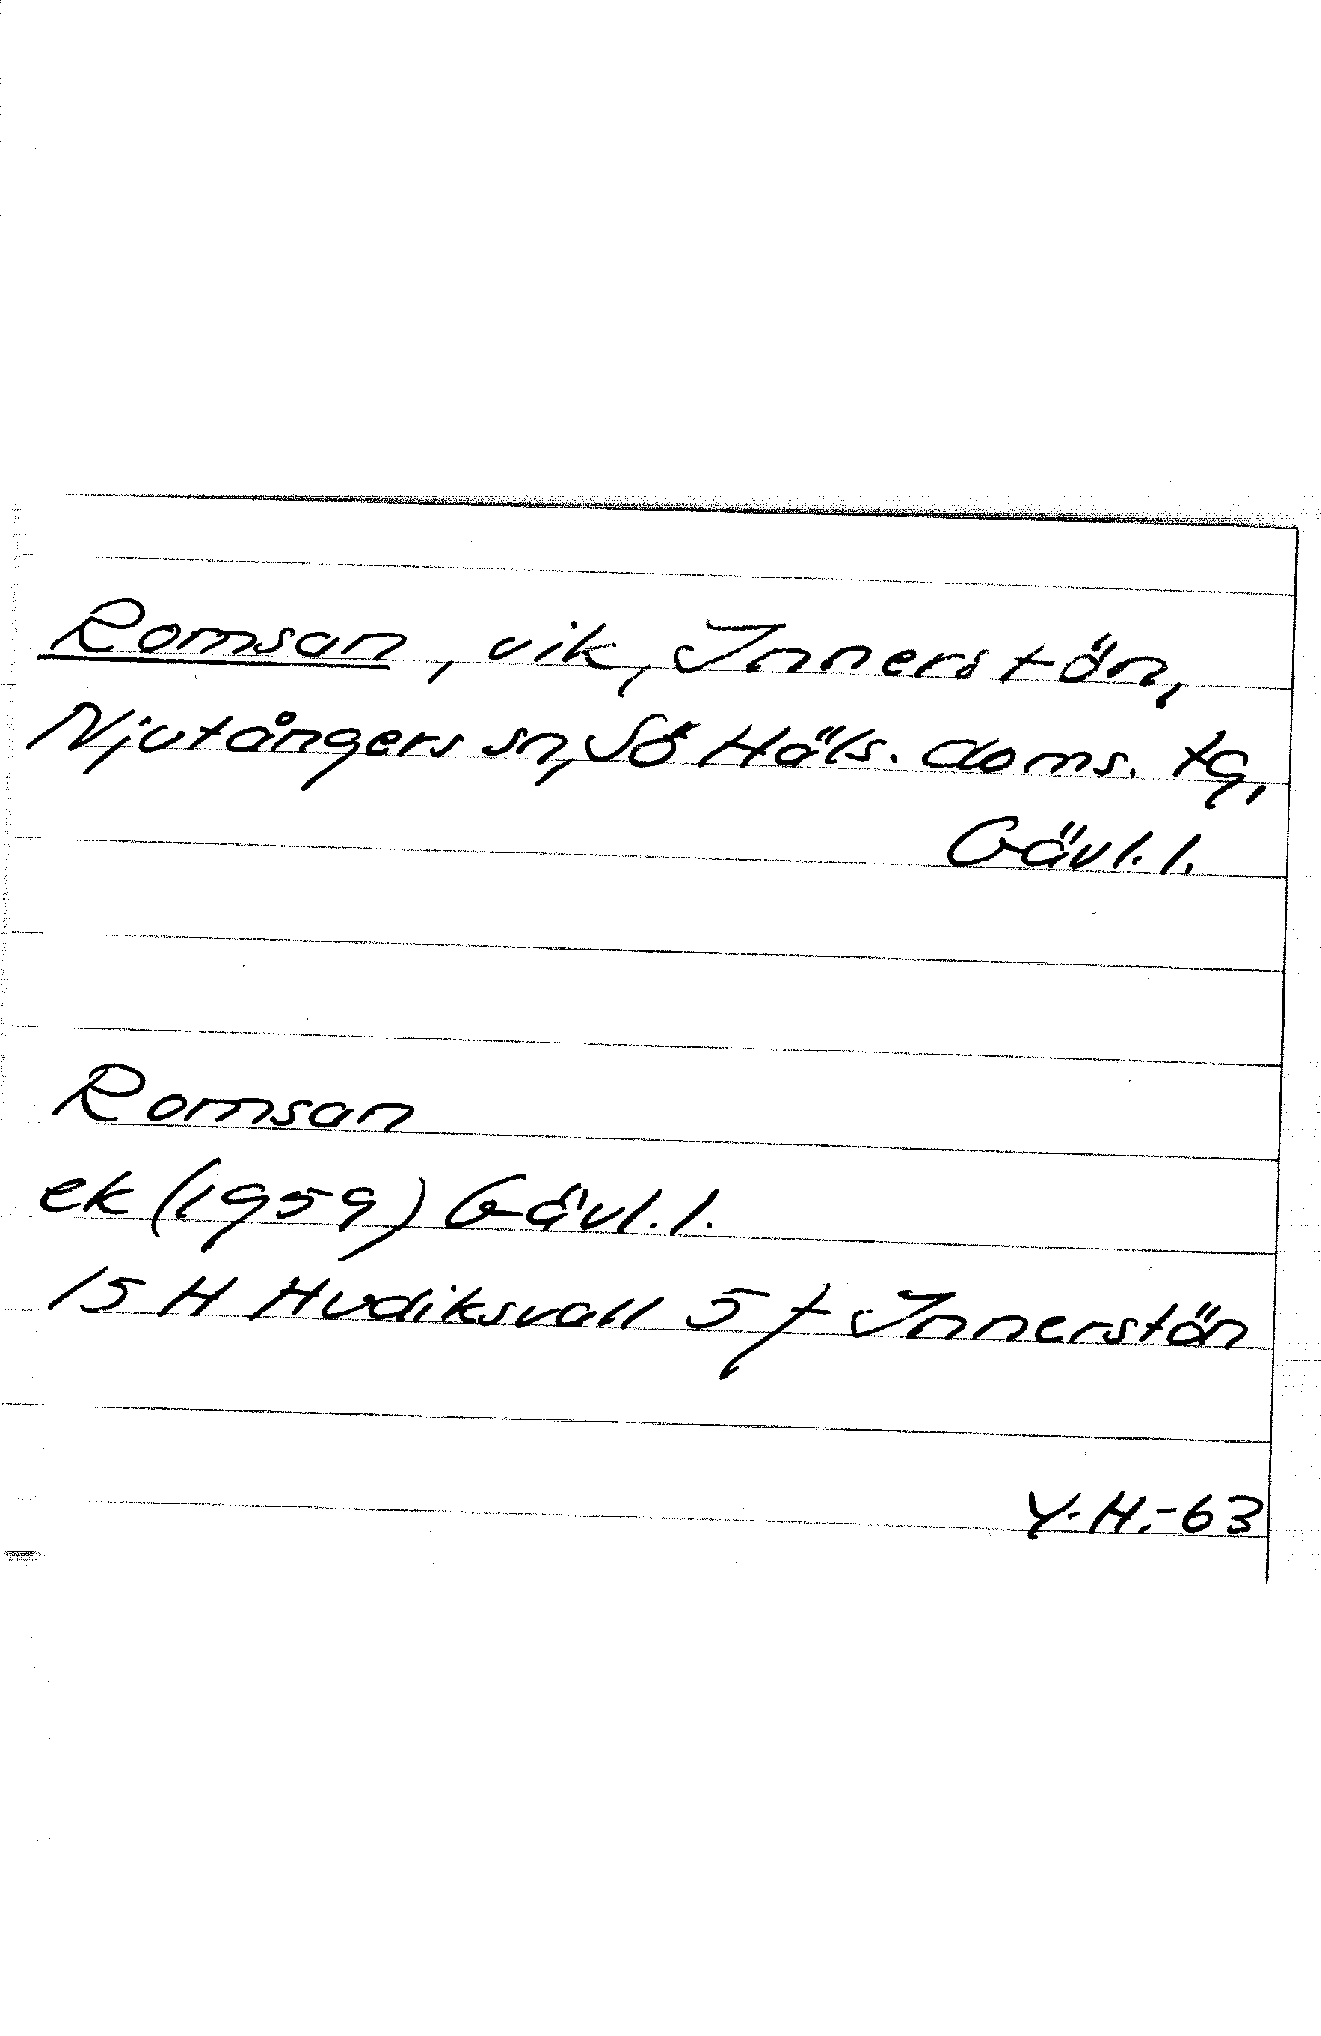 Romsan, vik, Innerstön,
Njutångers sn, Sö Häls. doms. tg,
Gävl. l.
Romsan
ek (1959) Gävl. l.
15 H Hudiksvall 5 f Innerstön
Y.H.-63